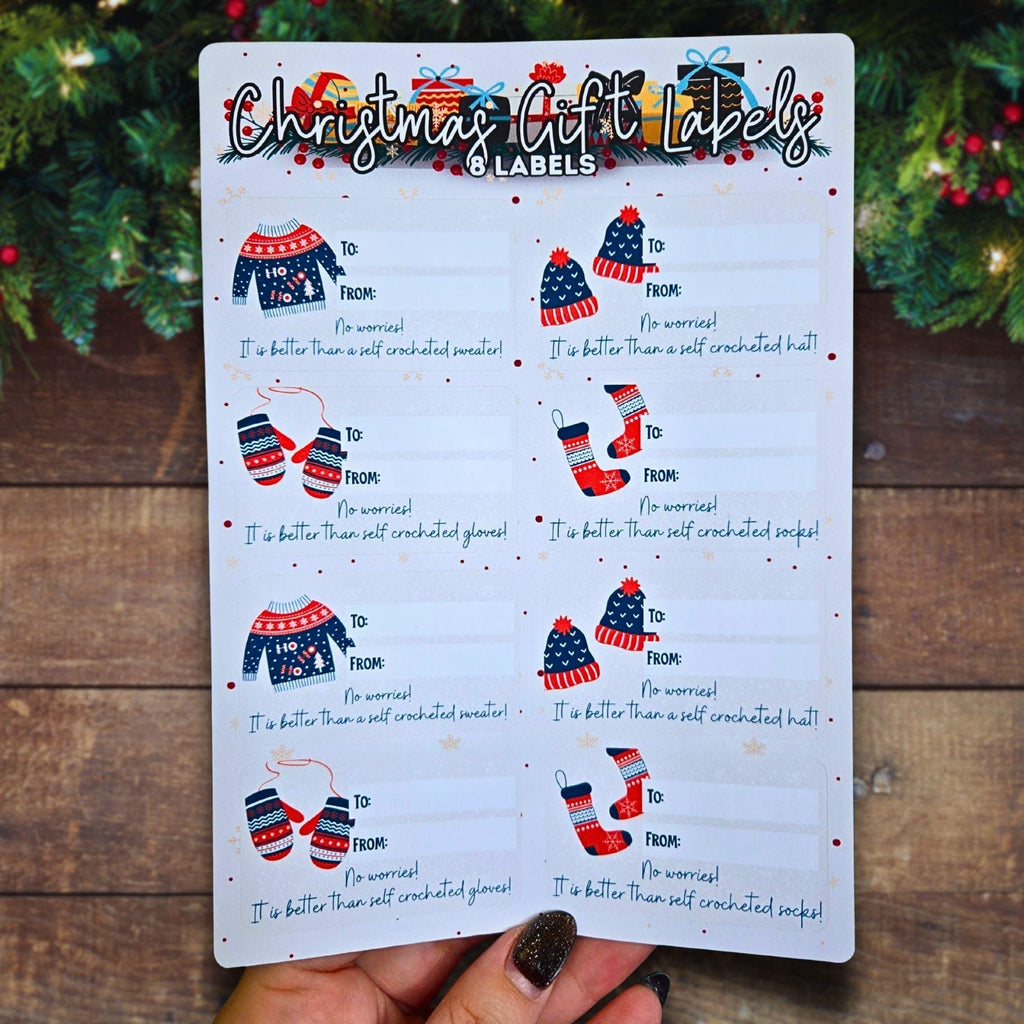 Christmas Gift Labels
8 LABELS
HO
HO HO
TO:
FROM:
No worries!
It is better than a self crocheted sweater!
TO:
FROM:
No worries!
It is better than a self crocheted hat!
TO:
FROM:
No worries!
It is better than self crocheted gloves!
TO:
FROM:
No worries!
It is better than self crocheted socks!
HO
HO HO
TO:
FROM:
No worries!
It is better than a self crocheted sweater!
TO:
FROM:
No worries!
It is better than a self crocheted hat!
TO:
FROM:
No worries!
It is better than self crocheted gloves!
TO:
FROM:
No worries!
It is better than self crocheted socks!